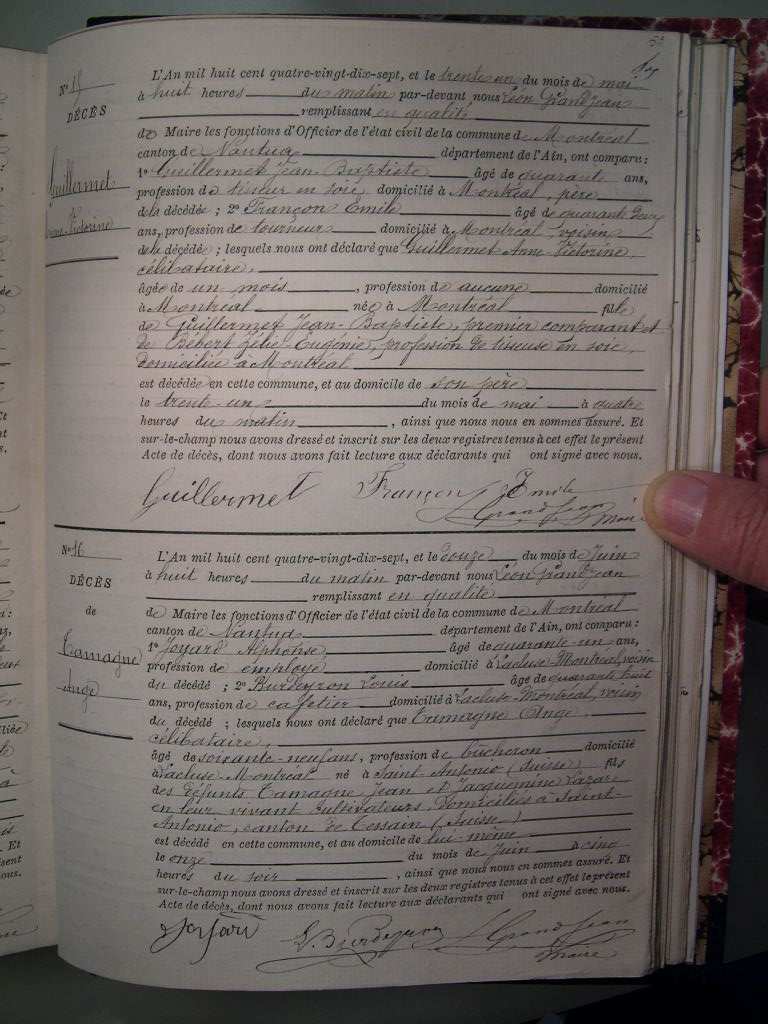 N° 15
DÉCÈS
Guillermet
Anne-Victorine
L'An mil huit cent quatre-vingt-dix-sept, et le trente un du mois de mai
à huit heures du matin par-devant nous Léon Grandjean
remplissant en qualité
de Maire les fonctions d'Officier de l'état civil de la commune de Montréal
canton de Nantua département de l'Ain, ont comparu:
1° Guillermet Jean-Baptiste âgé de quarante ans,
profession de tisseur en soie domicilié à Montréal, père
de la décédée; 2° Françon Emile âgé de quarante deux
ans, profession de tourneur domicilié à Montréal, voisin
de la décédée; lesquels nous ont déclaré que Guillermet Anne-Victorine,
célibataire,
âgée de un mois, profession de aucune domicilié
à Montréal née à Montréal fille
de Guillermet Jean-Baptiste, premier comparant et
de Eugénie, profession de tisseuse en soie,
domiciliée à Montréal
est décédée en cette commune, et au domicile de son père
le trente-un du mois de mai à quatre
heures du matin, ainsi que nous nous en sommes assuré. Et
sur-le-champ nous avons dressé et inscrit sur les deux registres tenus à cet effet le présent
Acte de décès, dont nous avons fait lecture aux déclarants qui ont signé avec nous.
Guillermet Françon Emile
Grandjean
Maire
N° 16
DÉCÈS
de
Tamagne
Ange
L'An mil huit cent quatre-vingt-dix-sept, et le douze du mois de Juin
à huit heures du matin par-devant nous Léon Grandjean
remplissant en qualité
de Maire les fonctions d'Officier de l'état civil de la commune de Montréal
canton de Nantua département de l'Ain, ont comparu:
1° Joyard Alphonse âgé de quarante-un ans,
profession de employé domicilié à Lacluse-Montréal, voisin
du décédé; 2° Burdeyron Louis âgé de quarante huit
ans, profession de cafetier domicilié à Lacluse-Montréal, voisin
du décédé; lesquels nous ont déclaré que Tamagne Ange
célibataire,
âgé de soixante-neuf ans, profession de bucheron domicilié
à Lacluse-Montréal né à Saint Antonio (Suisse) fils
des défunts Tamagne Jean et Jacquemine Lazare
en leur vivant cultivateurs, domiciliés à Saint-
Antonio, canton de Tessain (Suisse)
est décédé en cette commune, et au domicile de lui-même
le onze du mois de Juin à cinq
heures du soir, ainsi que nous nous en sommes assuré. Et
sur-le-champ nous avons dressé et inscrit sur les deux registres tenus à cet effet le présent
Acte de décès, dont nous avons fait lecture aux déclarants qui ont signé avec nous.
Joyard L. Burdeyron Grandjean
Maire